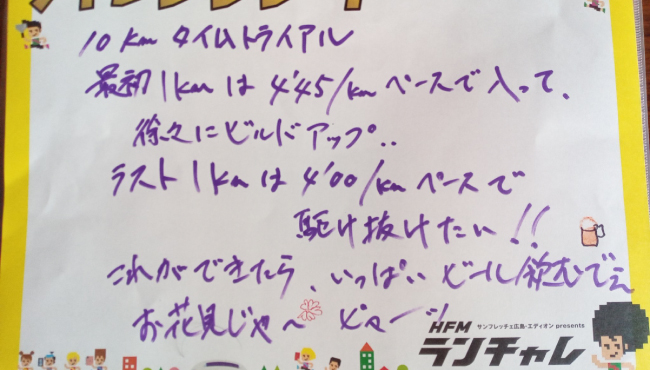 10km タイムトライアル
最初1kmは4'45/kmペースで入って、
徐々にビルドアップ..
ラスト1kmは4'00/kmペースで
駆け抜けたい!!
これができたら、いっぱいビール飲むでぇ
お花見じゃ〜
HFM サンフレッチェ広島・エディオン presents
ランチャレ